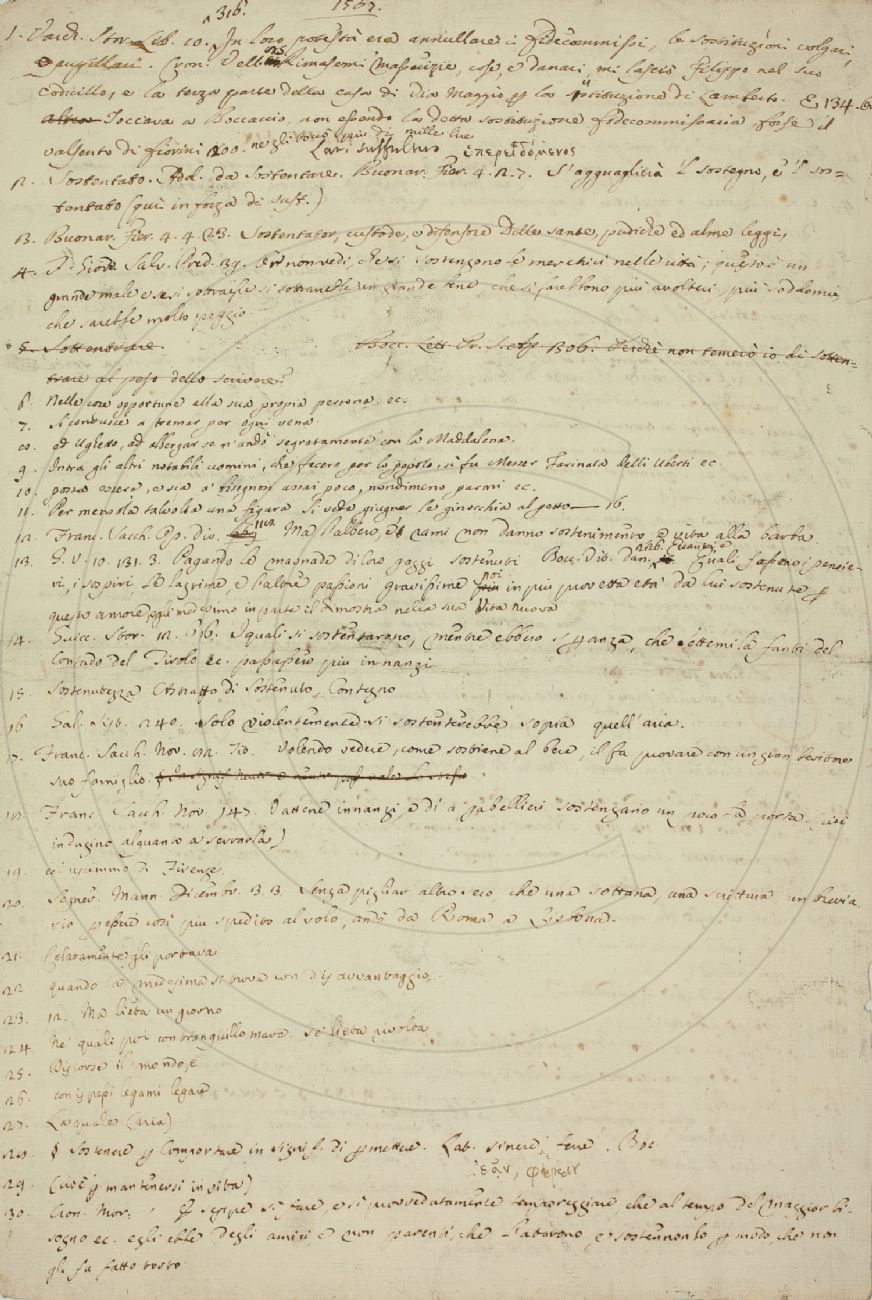 316. 1567.
1. Varch. Stor. Lib. 10. In loro potestà era annullare i fidecommissi, le sostituzioni volgari,
e pupillari. Rimasemi masserizie, cose, e danari, mi lasciò Filippo nel suo
codicillo, e la terza parte della casa di Via Maggio la sostituzione di Lamberto. E 134. 6
Toccava a Boccaccio, non essendo la detta sostituzione fidecommissaria, forse il
valsento di fiorini 200. ne gli toccò più di mille lire Lat. suffultus ἐπερειδόμενος
2. Sostentato. Add. da Sostentare. Buonar. Fier. 4. 2. 7. S'agguaglierà 'l sostegno, e 'l sos-
tentato (qui in forza di sust.)
3. Buonar. Fier. 4. 4. 23. Sostentator, custode, e difensore Delle sante, pudiche ed alme leggi,
4. Fr. Giord. Salv. Pred. 39. Or non vedi, che si sostengono le meretrici nelle città; questo è un
grande male e se si sottraesse un grande bene, che si farebbono più avolteri, più soddomie,
che sarebbe molto peggio.
5. Sottentrare. Bocc. Lett. Pr. S. Ap. 306. Perchè non temerò io di sotten-
trare al peso dello scrivere?
6. Nelle cose opportune alla sua propia persona. ec.
7. Si conducse a tremar per ogni vena
8. ed Ughetto, ad albergar se n'andò segretamente con la Maddalena.
9. Intra gli altri notabili uomini, che fecero per lo popolo, si fu Messer Farinata delli Uberti ec.
10. possa essere, e sia a' bisognosi assai poco, nondimeno parmi ec.
11. Per mensola talvolta una figura Si vede giugner le ginocchia al petto — 16.
12. Franc. Sacch. Op. div. 112. Ma l'albero, e i rami non danno sostenimento e vita alla barba
13. G. V. 10. 131. 3. Pagando le masnade di loro gaggi sostenuti Bocc. Vit. Dan. 226. Quanti, e quali fossono i pensie-
ri, i sospiri, le lagrime, e l'altre passioni gravissime poi in più provetta età da lui sostenute
questo amore, egli medesimo in parte il dimostra nella sua Vita nuova
14. Guicc. Stor. 12. I quali si sostentarono, mentre ebbero speranza, che ottomila fanti del
Contado del Tirolo ec. passassero più innanzi
15. Sostenutezza Astratto di Sostenuto, Contegno
16 Gal. Sist. 240. solo violentemente si sostenterebbe sopra quell'aria.
17. Franc. Sacch. Nov. 92. Volendo vedere, come sostiene al bere, il fa provare con un gran bevitore
suo famiglio.
18. Franc. Sacch. Nov. 147. Vattene innanzi, e dì a' gabellieri sostengano un poco la porta (cioè
indugino alquanto a serrarla)
19. coi ... di Firenze.
20. Segner. Mann. Dicembr. 3. 3. Senza pigliar altro seco, che una sottana, una scrittura un brevia
rio per essere così più spedito al volo, andò da Roma a Lisbona.
21. Celatamente gli portava
22. quando la medesima si trova con disavvantaggio.
23. 12. Ma lieta un giorno
24. Ne' quali poi con tranquillo mare se lieta rivolta
25. Discorse il mondo, e
26. con ispessi legami legare
27. La quale (aria)
28. § Sostenere Comportare in signif. di permettere. Lat. sinere, ferre. Boc
ἐᾶν, φέρειν
29. (cioè mantenersi in vita)
30. Cron. Mor. E sempre si fare, e sì provvedutamente temporeggiare, che al tempo del maggior bi-
sogno ec. egli ebbe degli amici e non parenti, che l'atarono, e sostennonlo modo, che non
gli fu fatto torto